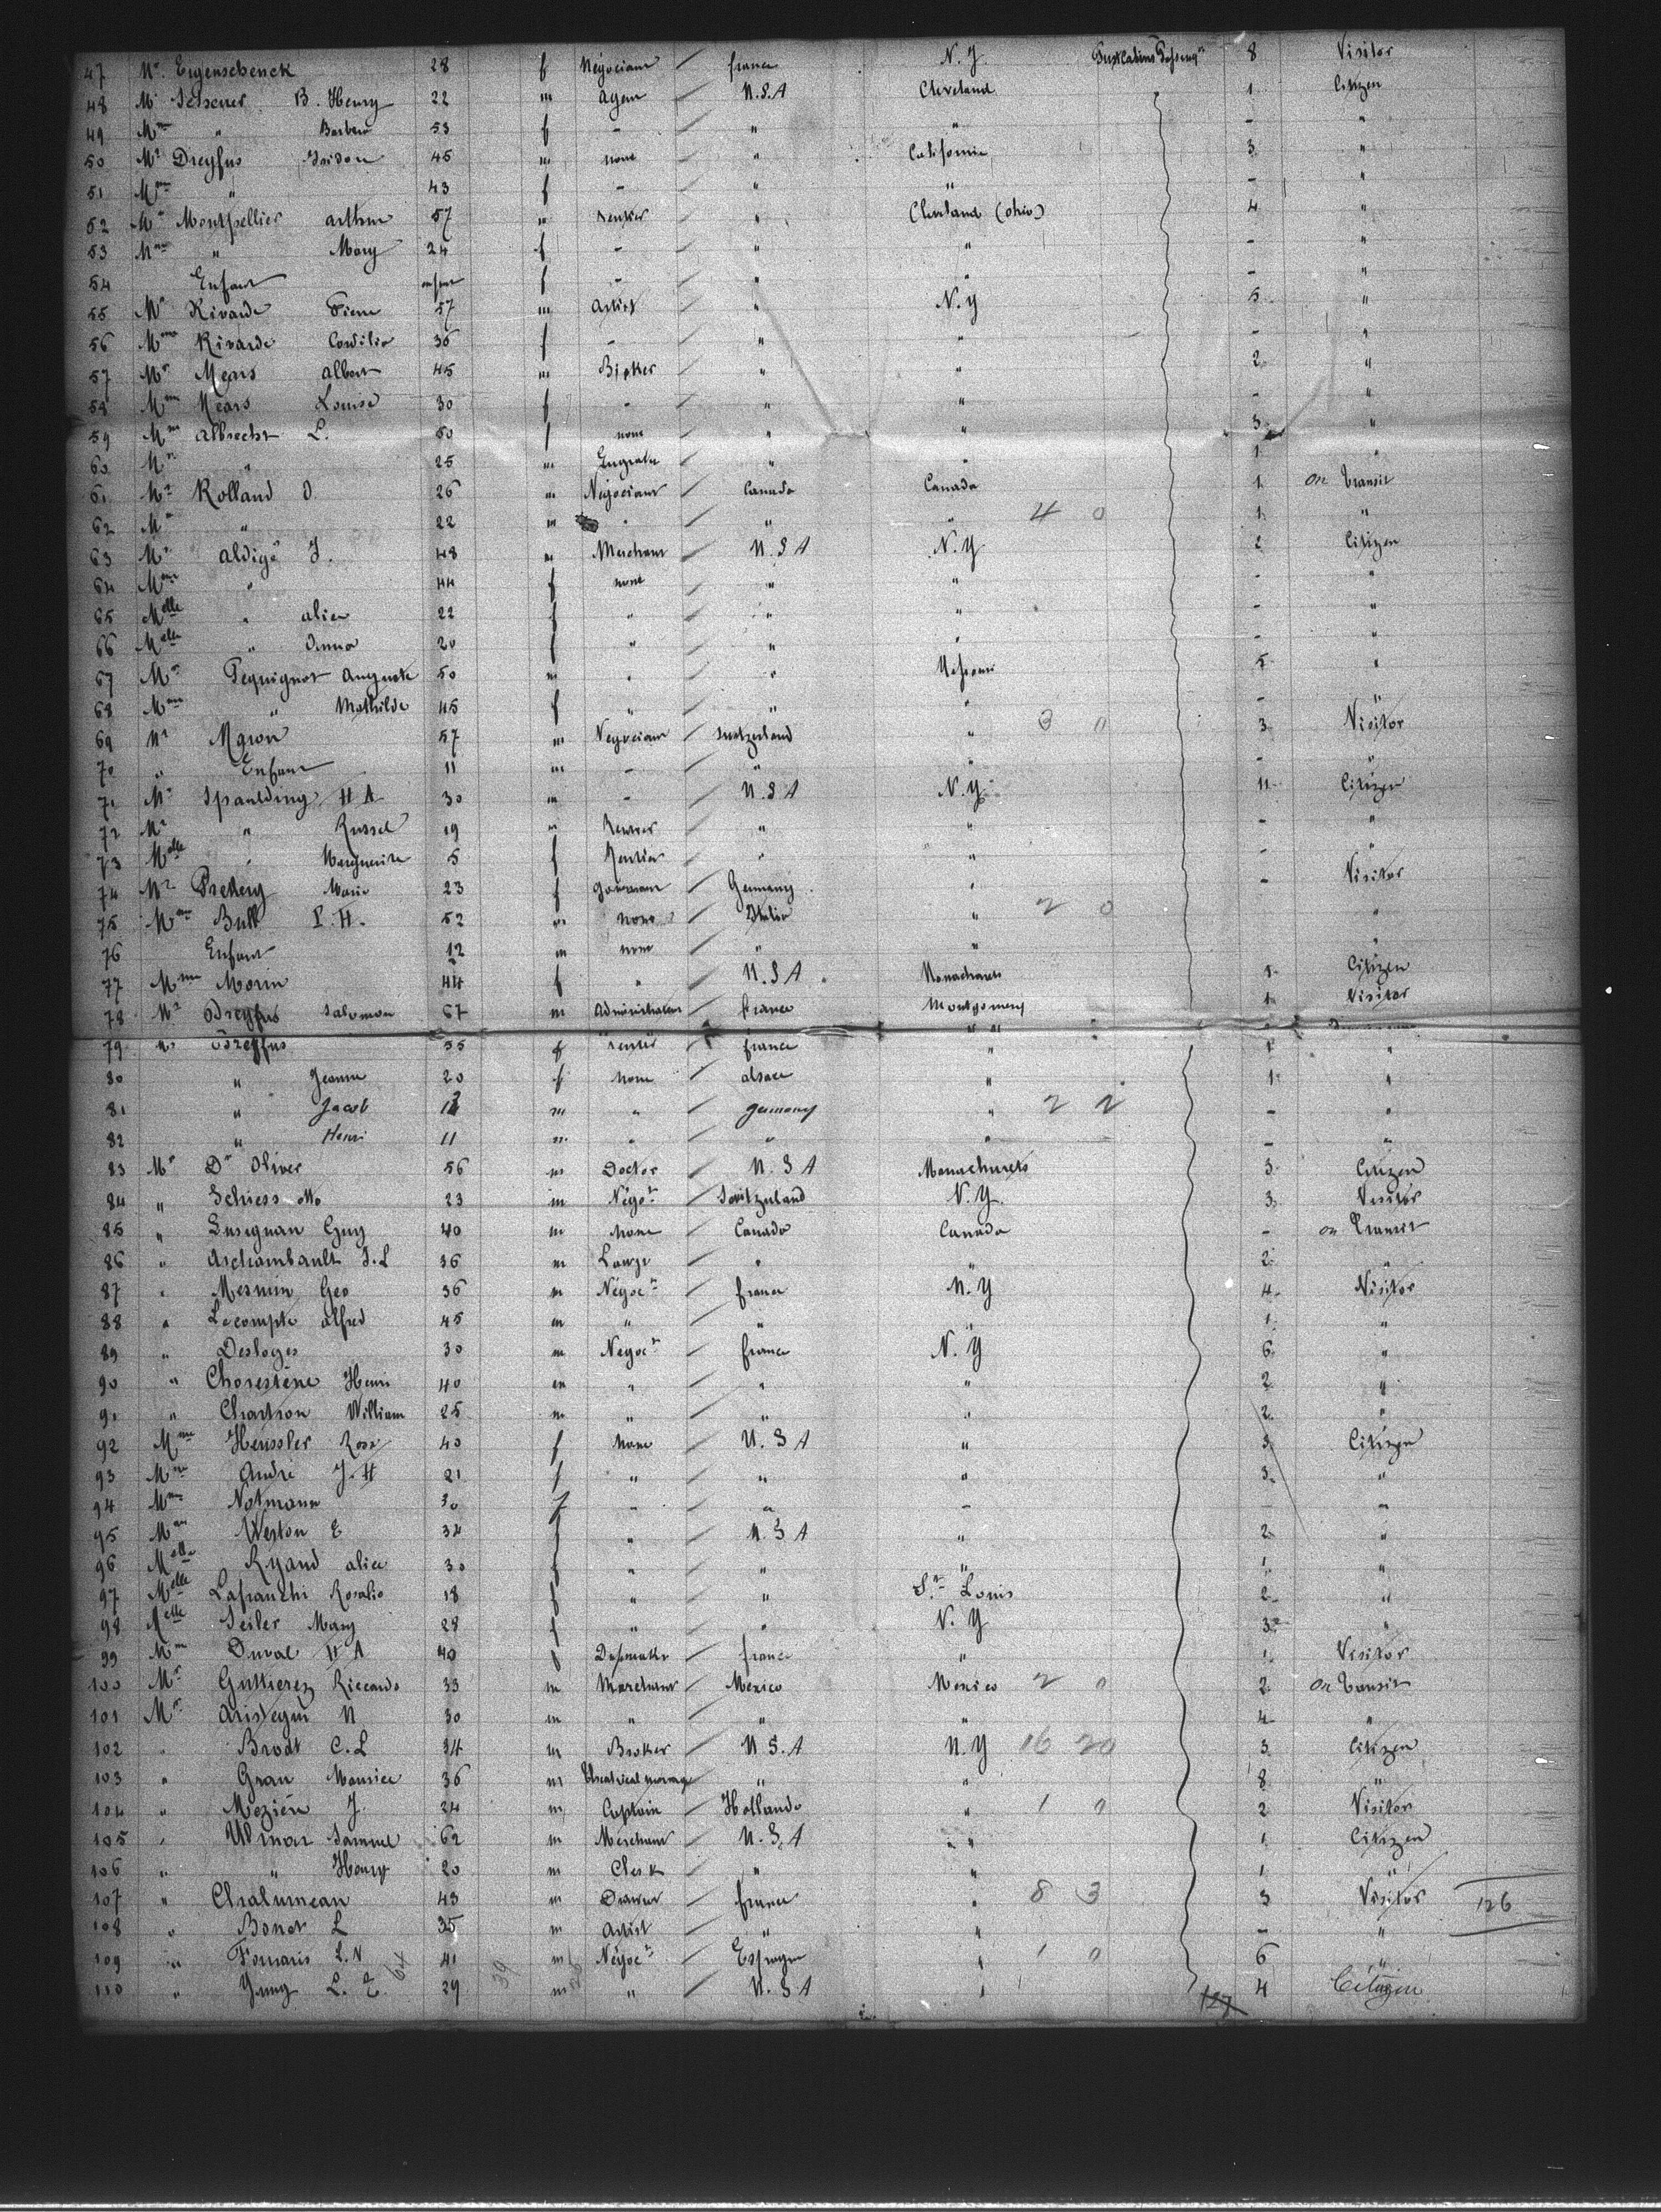 47 Mr. Eugenschenck 28 f Négociant / france N.Y First Cabin Passeng" 8 Visitor
48 Mr B. Henry 22 m Agen / U.S.A Cleveland 1 Citizen
49 Mme " Barbara 53 f - / " " - "
50 Mr Dreyfus Isidor 45 m none / " California 3 "
51 Mme " 43 f - / " " - "
52 Mr Montpellier arthur 57 m rentier / " Cleveland (ohio) 4 "
53 Mme " Mary 24 f - / " " - "
54 Enfant f - / " " - "
55 Mr Rivarde Pierre 57 m Artist / " N.Y 5 "
56 Mme Rivarde Cordilia 36 f - / " " - "
57 Mr Mears albert 45 m Broker / " " 2 "
58 Mme Mears Louise 30 f - / " " - "
59 Mme Albrecht L. 50 f none / " " 3 "
60 Mr " 25 m / " " 1 "
61 Mr Rolland O 26 m Négociant / Canada Canada 1 on transit
62 Mr " 22 m " / " " 4 0 1 "
63 Mr aldigé J. 48 m Merchant / U.S A N.Y 2 Citizen
64 Mme " 44 f none / " " - "
65 Melle " alice 22 f " / " " - "
66 Melle " Anna 20 f " / " " - "
67 Mr Pequignot Auguste 50 m " / " 5 "
68 Mme " Mathilde 45 f " / " " - "
69 Mr Maron 57 m Négociant / Switzerland " 3 0 3 Visitor
70 " Enfant 11 m - / " - "
71 Mr Spaulding H A 30 m - / U.S A N.Y 11 Citizen
72 Mr " Russel 19 m Rentier / " " - "
73 Melle " Marguerite 5 f Rentier / " " - "
74 Mr Marie 23 f / Germany " - Visitor
75 Mme Bull P.H. 52 m none / Italie " 2 0 "
76 Enfant 12 m none / " " "
77 Mme Morin 44 f " / U.S A 1 Citizen
78 Mr Dreyfus Salomon 67 m / france Montgomery 1 Visitor
79 Mr Dreyfus 55 f rentier / france " 1 "
80 " Jeanne 20 f none / alsace " 1 "
81 " Jacob m " / germany " 2 2 - "
82 " Henri 11 m " / " " - "
83 Mr Dr Oliver 56 m Doctor / U.S A 3 Citizen
84 " Schiess otto 23 m Négot / Switzerland N.Y. 3 Visitor
85 " Lusignan Guy 40 m None / Canada Canada - on transit
86 " Archambault J.L 36 m / " " 2 "
87 " Mesmin Geo 36 m Négoct / france N.Y 4 Visitor
88 " Lecompte alfred 45 m " / " " 1 "
89 " Desloges 30 m Negoct / france N.Y 6 "
90 " Henri 40 m " / " " 2 "
91 " Chartron William 25 m " / " " 2 "
92 Mme Heussler Rosa 40 f None / U.S A " 3 Citizen
93 Mme André J.H 21 f " / " " 3 "
94 Mme Notmann 30 f " / " - - "
95 Mme Weston E 34 f " / U.S A " 2 "
96 Melle Ryand alice 30 f " / " " 1 "
97 Melle Lafranchi Rosalie 18 f " / " St Louis 2 "
98 Melle Seiler Mary 28 f " / " N.Y 3 "
99 Mme Duval H A 40 f / france " 1 Visitor
100 Mr Guttierez Riccardo 33 m Marchant / Mexico Mexico 2 0 2 on transit
101 Mr Aristegui N 30 m " / " " 4 "
102 " Brodt C.L 34 m Broker / U.S.A N.Y 16 20 3 Citizen
103 " Grau Maurice 36 m theatrical manager / " " 8 "
104 " Mezière J. 24 m Captain / Hollande " 1 0 2 Visitor
105 " Ulman Samuel 62 m Merchant / U.S.A " 1 Citizen
106 " " Henry 20 m Clerk / " " 1 "
107 " Chalumeau 43 m / france " 8 3 3 Visitor 126
108 " Bonet L 35 m Artist / " " - "
109 " Fornaris L.N 41 m Négoct / Espagne " 1 0 6 "
110 " Yung L. E. 64 29 39 m " / U.S A " 4 Citizen
127